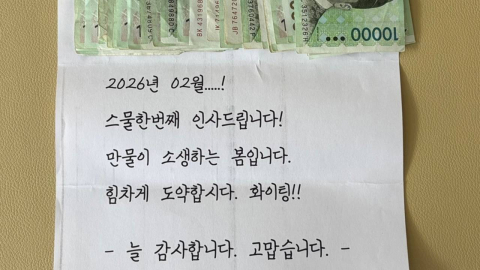 10000
2026년 02월.....!
스물한번째 인사드립니다!
만물이 소생하는 봄입니다.
힘차게 도약합시다. 화이팅!!
- 늘 감사합니다. 고맙습니다. -